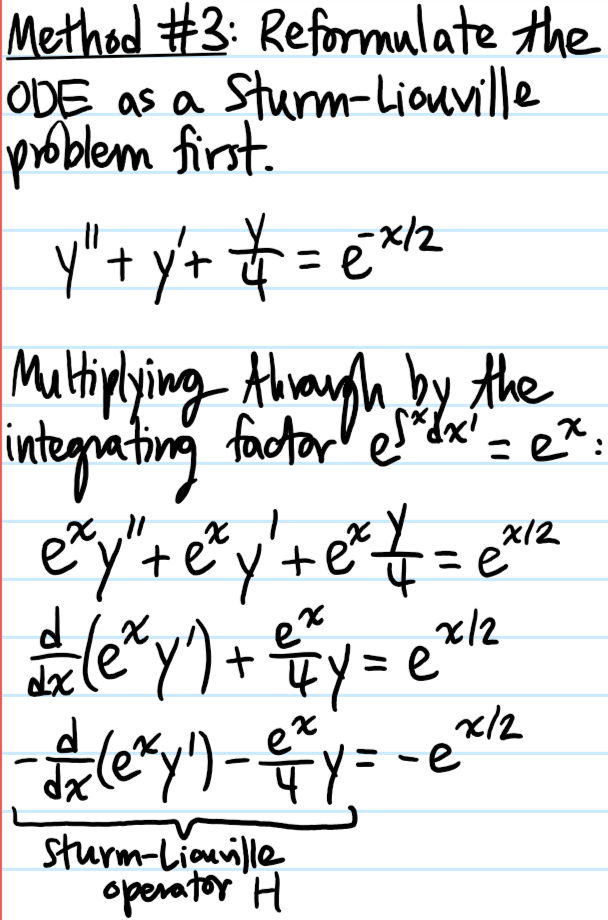 Method #3: Reformulate the
ODE as a Sturm-Liouville
problem first.
y'' + y' + y/4 = e^{-x/2}
Multiplying through by the
integrating factor e^{∫^x dx'} = e^x:
e^x y'' + e^x y' + e^x y/4 = e^{x/2}
d/dx (e^x y') + e^x/4 y = e^{x/2}
-d/dx (e^x y') - e^x/4 y = -e^{x/2}
Sturm-Liouville
operator H